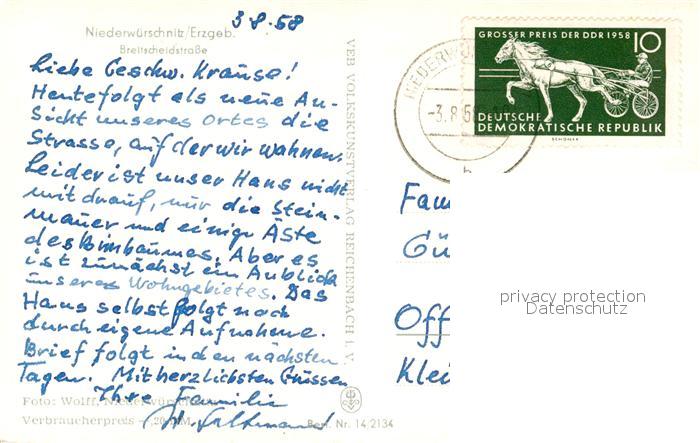 3 8. 58
Niederwürschnitz/Erzgeb.
Breitscheidstraße
Liebe Geschw. Krause!
Heute folgt als neue An-
sicht unseres Ortes die
Strasse, auf der wir wohnen.
Leider ist unser Haus nicht
mit drauf, nur die Stein-
mauer und einige Äste
des Birnbaumes. Aber es
ist zunächst ein Anblick
unseres Wohngebietes. Das
Haus selbst folgt noch
durch eigene Aufnahme.
Brief folgt in den nächsten
Tagen. Mit herzlichsten Grüssen
Ihre Familie
Foto: Wolff, Niederwürschnitz
Verbraucherpreis —,20 DM
Best. Nr. 14/2134
VEB VOLKSKUNSTVERLAG REICHENBACH I. V.
GROSSER PREIS DER DDR 1958
10
DEUTSCHE
DEMOKRATISCHE REPUBLIK
-3.8.58
b
Fam
Gü
Off
Klei
privacy protection
Datenschutz